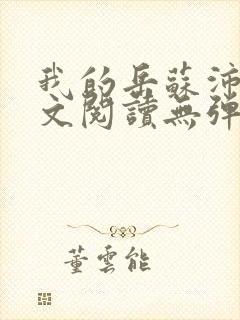 我的岳蘇沛
文閱讀無彈
董雲能